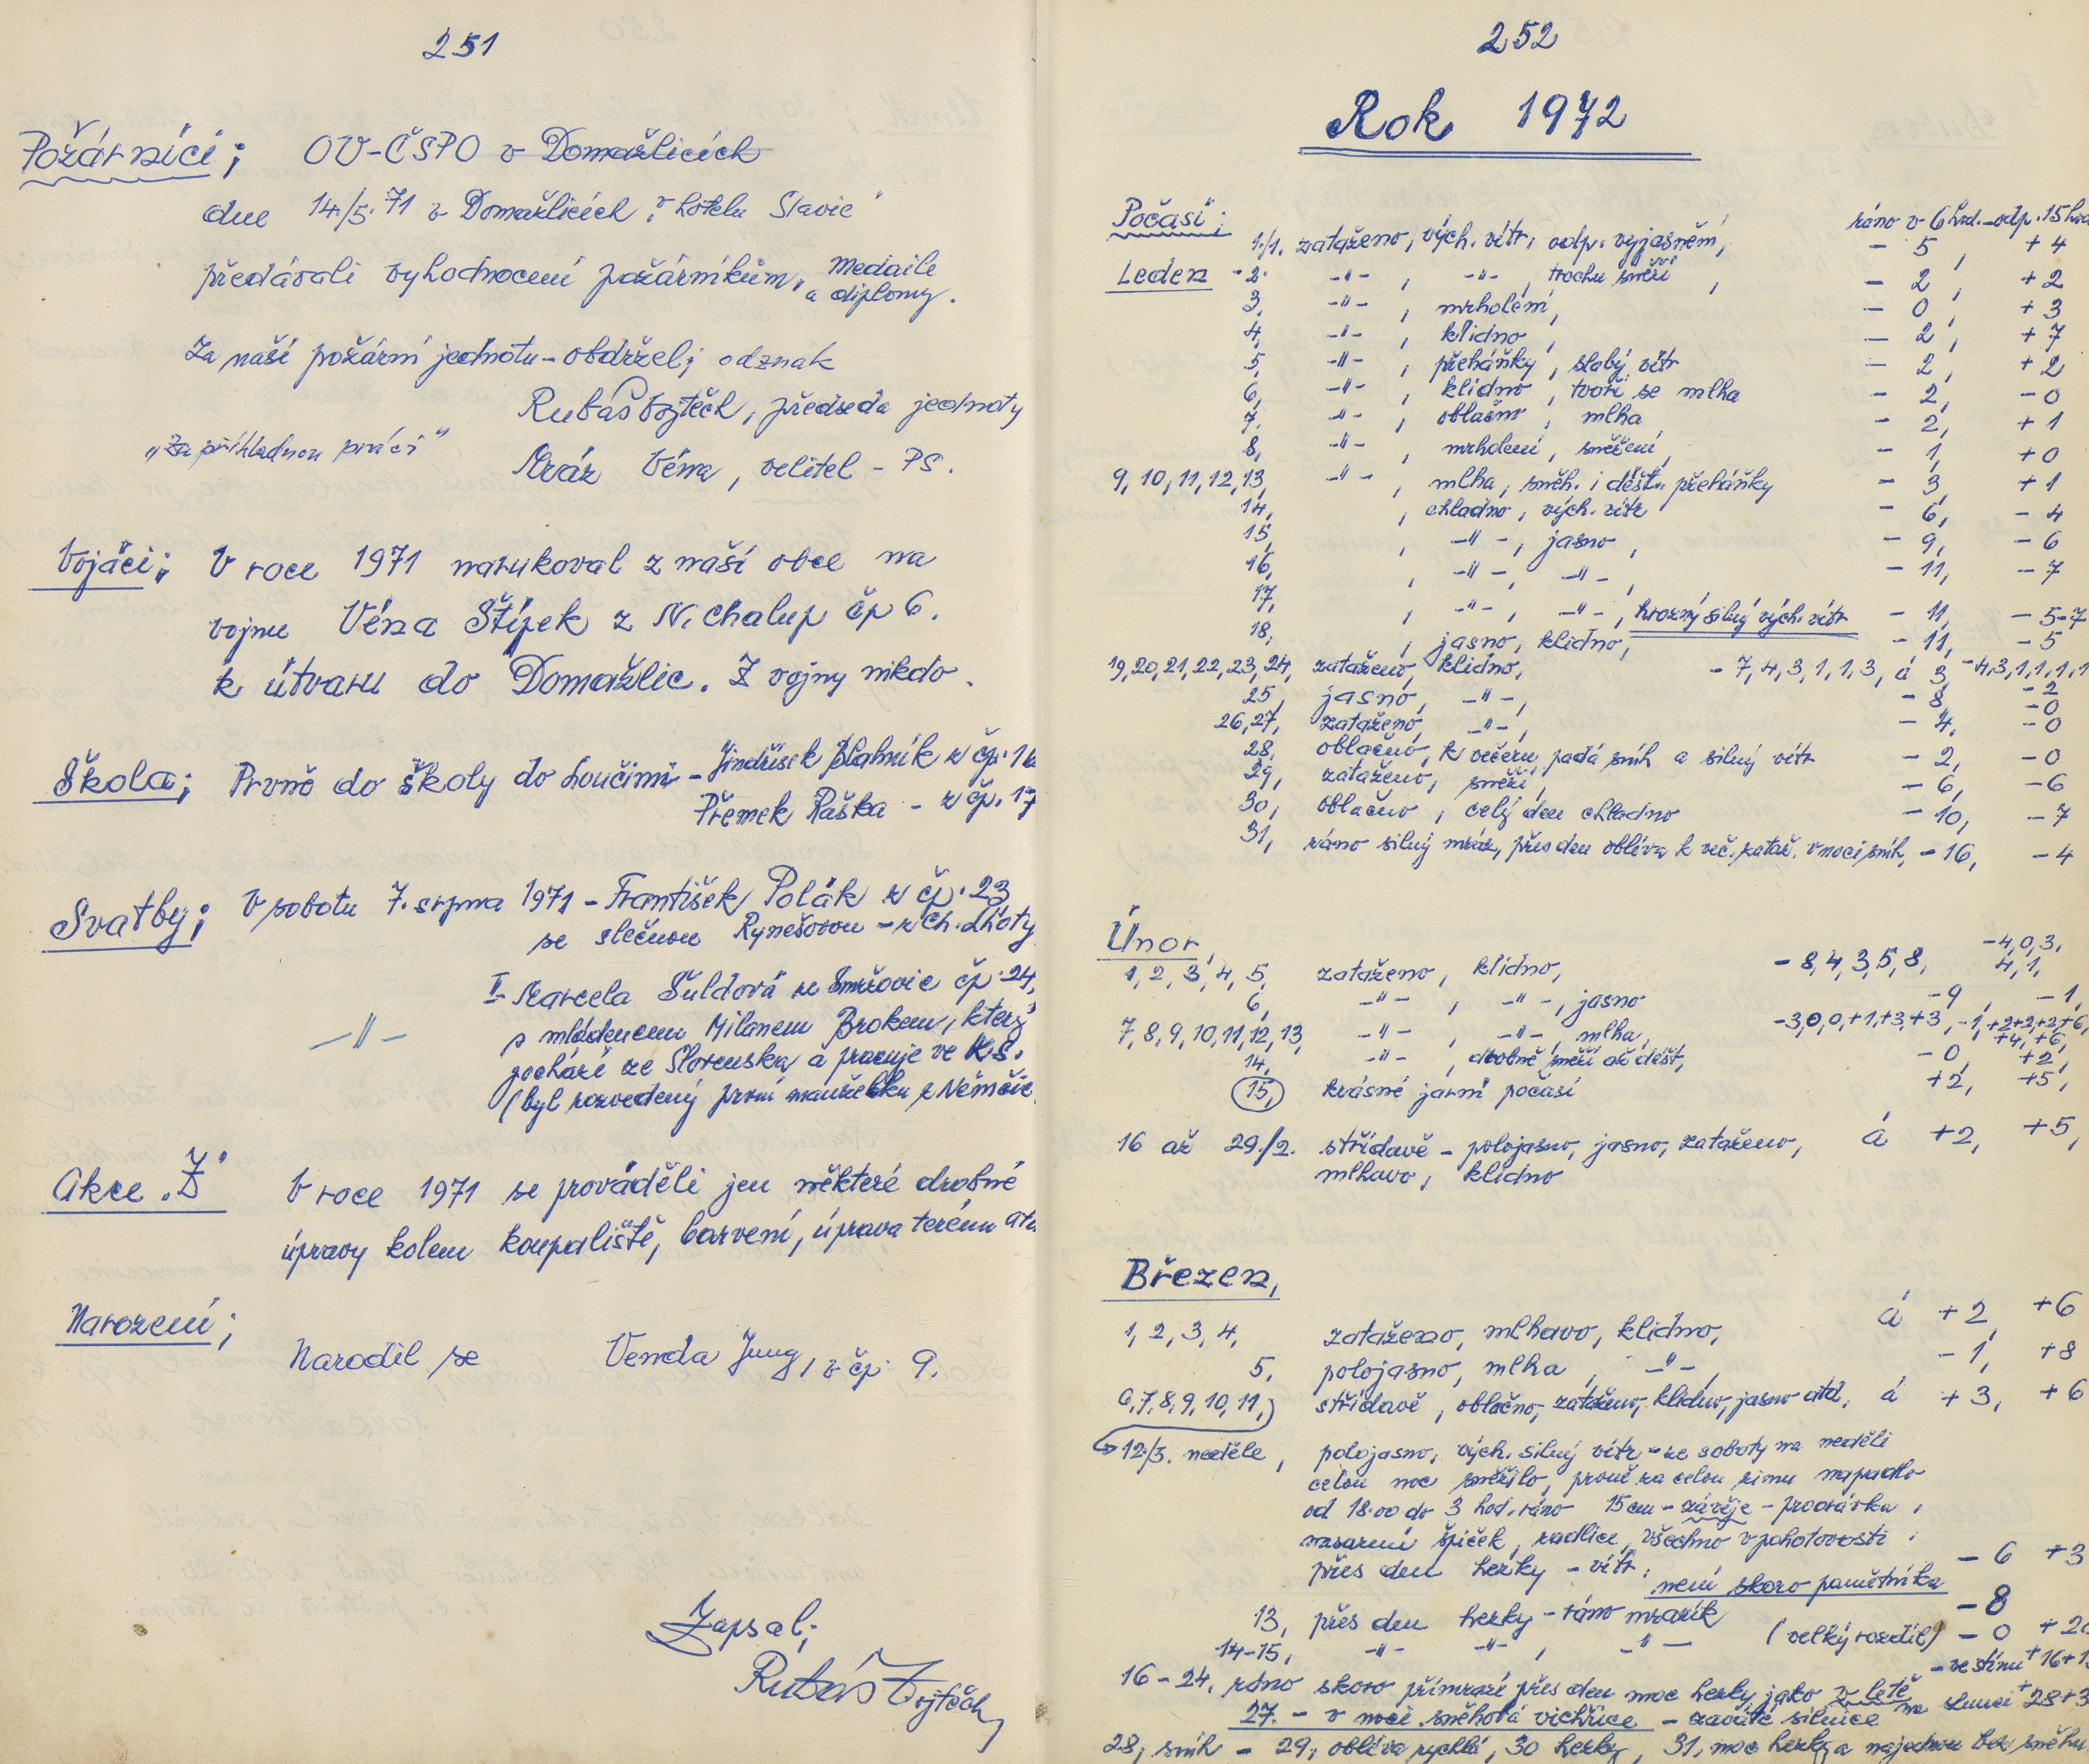 251
Požárníci; OV-ČSPO v Domažlicích
dne 14./5. 71 v Domažlicích „v hotelu Slavie"
předávali vyhodnocení požárníkům, medaile
a diplomy.
Za naší požární jednotu - obdržel; odznak
Rubáš Vojtěch, předseda jednoty
„Za příkladnou práci"
Mráz Véna, velitel - PS.
Vojáci; V roce 1971 narukoval z naší obce na
vojnu Véna Štípek z N. Chalup čp 6.
k útvaru do Domažlic. Z vojny nikdo.
Škola; Prvně do školy do Loučimi - Jindřísek Blahník z čp. 16
Přemek Paška - z čp. 17
Svatby; V sobotu 7. srpna 1971 - František Polák z čp. 23
se slečnou Rynešovou - z Ch. Lhoty
-"- I- Marcela Šuldová ze Smržovic čp. 24,
s mládencem Milanem Brokem, který
pochází ze Slovenska a pracuje ve K.S.
(byl rozvedený první manželku z Němčic
Akce „Z" V roce 1971 se prováděli jen některé drobné
úpravy kolem koupaliště, barvení, úprava terénu atd
Narození;
Narodil se Venda Jung, v čp. 9.
Zapsal;
Rubáš Vojtěch,
252
Rok 1972
Počasí; ráno v 6 hod. - odp. 15 hod
1./1. zataženo, vých. vítr, odp. vyjasnění, - 5, + 4
Leden - 2. -"- , -"- , trochu sněží , - 2, + 2
3, -"- , mrholení, - 0, + 3
4, -"- , klidno, - 2, + 7
5, -"- , přeháňky, slabý vítr - 2, + 2
6, -"- , klidno, tvoří se mlha - 2, - 0
7. -"- , oblačno, mlha - 2, + 1
8, -"- , mrholení, sněžení, - 1, + 0
9, 10, 11, 12, 13, -"- , mlha, sněh. i děšť. přeháňky - 3, + 1
14, , chladno, vých. vítr - 6, - 4
15, , -"- , jasno, - 9, - 6
16, , -"- , -"- , - 11, - 7
17, , -"- , -"- , hrozný silný vých. vítr - 11, - 5-7
18, , jasno, klidno, - 11, - 5
19, 20, 21, 22, 23, 24, zataženo, klidno, - 7, 4, 3, 1, 1, 3, á 3, - 4, 3, 1, 1, 1, 1
25, jasno, -"- , - 8 - 2
- 0
26, 27, zataženo, -"- , - 4, - 0
28. oblačno, k večeru padá sníh a silný vítr - 2, - 0
29, zataženo, sněží, - 6, - 6
30, oblačno, celý den chladno - 10, - 7
31, ráno silný mráz, přes den obleva k več. zataž. v noci sníh, - 16, - 4
Únor,
1, 2, 3, 4, 5, zataženo, klidno, - 8, 4, 3, 5, 8, - 4, 0, 3,
4, 1,
6, -"- , -"- , jasno - 9, - 1,
7, 8, 9, 10, 11, 12, 13, -"- , -"- , mlha, - 3, 0, 0, +1, +3, +3, - 1, +2+2, +2, +6,
+4, +6,
14, -"- , drobně sněží až déšť, - 0, + 2,
15, krásné jarní počasí + 2, + 5,
16 až 29./2. střídavě - polojasno, jasno, zataženo, á + 2, + 5,
mlhavo, klidno
Březen,
1, 2, 3, 4, zataženo, mlhavo, klidno, á + 2, + 6
5, polojasno, mlha, -"- , - 1, + 8
6, 7, 8, 9, 10, 11,) střídavě, oblačno, zataženo, klidno, jasno atd. á + 3, + 6
12./3. neděle, polojasno, vých. silný vítr - ze soboty na neděli
celou noc sněžilo, prvně za celou zimu napadlo
od 18.00 do 3 hod. ráno 15 cm - závěje - prooravka,
nasazení špiček, radlice, všechno v pohotovosti.
přes den hezky - vítr, není skoro pamětníka - 6 + 3
13, přes den hezky - ráno mrazík - 8
14-15, -"- -"- , -"- (velký rozdíl) - 0 + 20
16 - 24. ráno skoro přimrazí přes den moc hezky jako v létě - ve stínu + 16 + 1
na slunci + 28 + 3
27. - v noci sněhová vichřice - zaváté silnice
28, sníh - 29, obleva rychlá, 30 hezky, 31, moc hezky a najednou bez sněhu